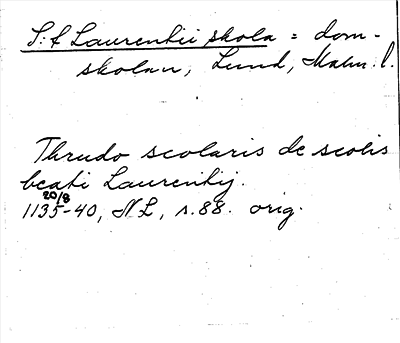 S:t Laurentii skola = dom-
skolan, Lund, Malm. l.
Thrudo scolaris de scolis
beati Laurentij.
20/8
1135-40, NL, s. 88. orig.